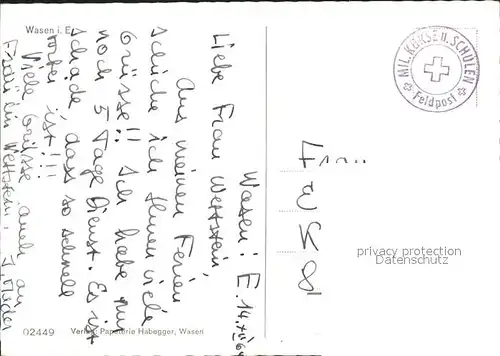 Wasen i. E.
Wasen i. E. 14.
Liebe Frau Wettstein,
Aus meinen Ferien
schicke ich Ihnen viele
Grüsse!! Ich habe nur
noch 5 Tage Dienst. Es ist
schade dass so schnell
ist!!!
Viele Grüsse auch an
Wettstein.
MIL. KURSE U. SCHULEN
Feldpost
Frau
privacy protection
Datenschutz
02449
Papeterie Habegger, Wasen